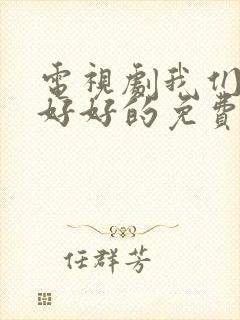 電視劇我们
好好的免費
任群芳